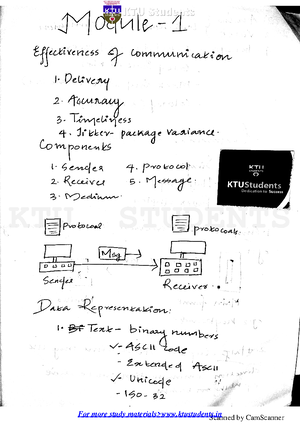 KTU Students
Module - 1
Effectiveness of communication
1. Delivery
2. Accuracy
3. Timeliness
4. Jitter - package variance.
Components
1. Sender 4. protocol
2. Receiver 5. Message.
3. Medium.
KTU
STUDENTS
KTUStudents
Dedication to Success
KTU STUDENTS
protocool
protocool
Msg
Sender
Receiver.
Data Representation:
1. Text - binary numbers
- ASCII code
- Extended ASCII
- Unicode
- ISO - 32
For more study materials>www.ktustudents.in
Scanned by CamScanner